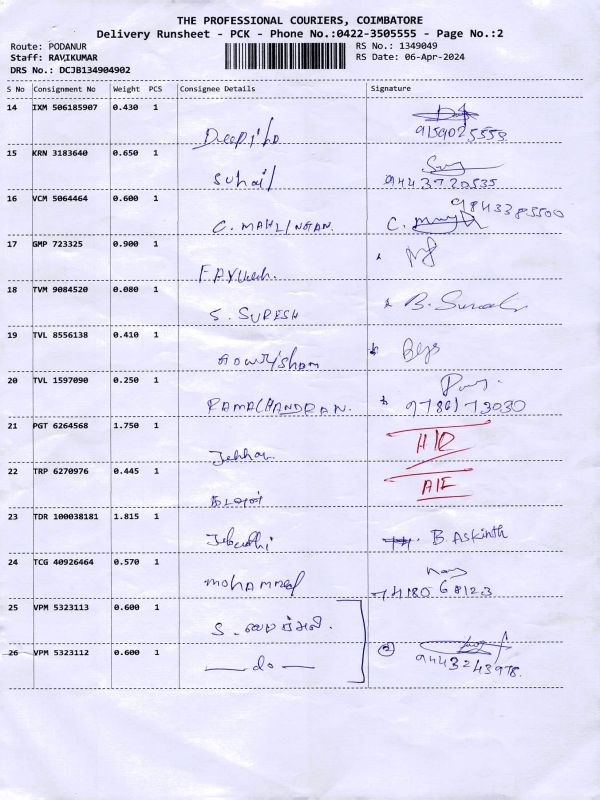 THE PROFESSIONAL COURIERS, COIMBATORE
Delivery Runsheet - PCK - Phone No.:0422-3505555 - Page No.:2
Route: PODANUR
RS No.: 1349049
Staff: RAVIKUMAR
RS Date: 06-Apr-2024
DRS No.: DCJB134904902
S No Consignment No Weight PCS Consignee Details Signature
14 IXM 506185907 0.430 1
Deepika
9159025553
15 KRN 3183640 0.650 1
Suhail
9443720535
16 VCM 5064464 0.600 1
9843385500
C. MAHLINGAN.
C.
17 GMP 723325 0.900 1
18 TVM 9084520 0.080 1
B. Suresh
S. SURESH
19 TVL 8556138 0.410 1
20 TVL 1597090 0.250 1
RAMACHANDRAN. 9786173030
21 PGT 6264568 1.750 1
H/O
22 TRP 6270976 0.445 1
A/E
23 TDR 100038181 1.815 1
B Askinth
24 TCG 40926464 0.570 1
mohammed
7418068123
25 VPM 5323113 0.600 1
S.
26 VPM 5323112 0.600 1
do
2
9443243978.